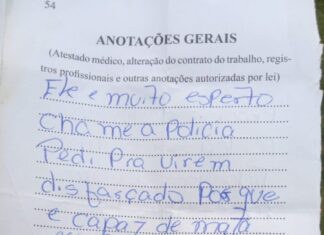 54
ANOTAÇÕES GERAIS
(Atestado médico, alteração do contrato do trabalho, regis-
tros profissionais e outras anotações autorizadas por lei)
Ele e muito esperto
Chame a Policia
Pedi Pra virem
disfarçado Porque
e capaz de mata